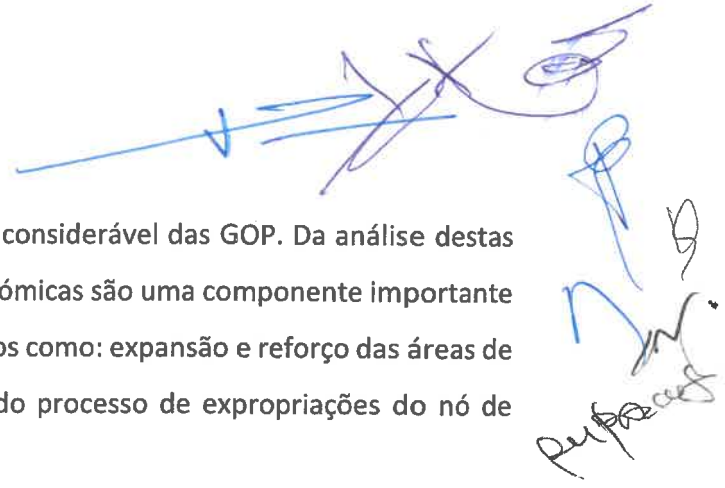 considerável das GOP. Da análise destas
ómicas são uma componente importante
os como: expansão e reforço das áreas de
do processo de expropriações do nó de